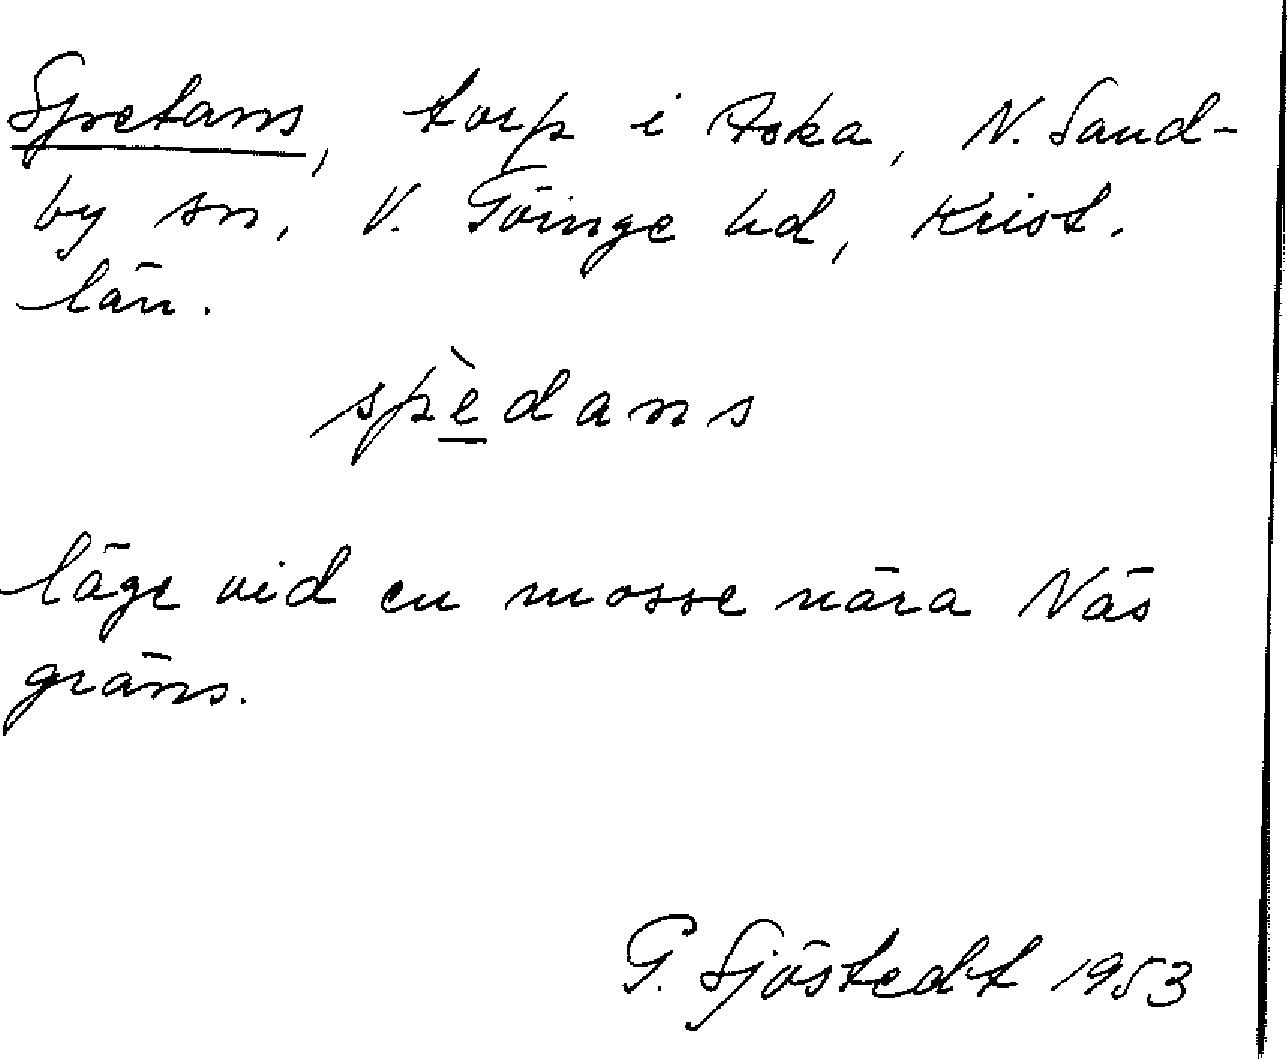 Spetans, torp i Aska, N. Sand-
by sn, V. Göinge hd, Krist.
län.
spèdans
läge vid en mosse nära Näs
gräns.
G. Sjöstedt 1953